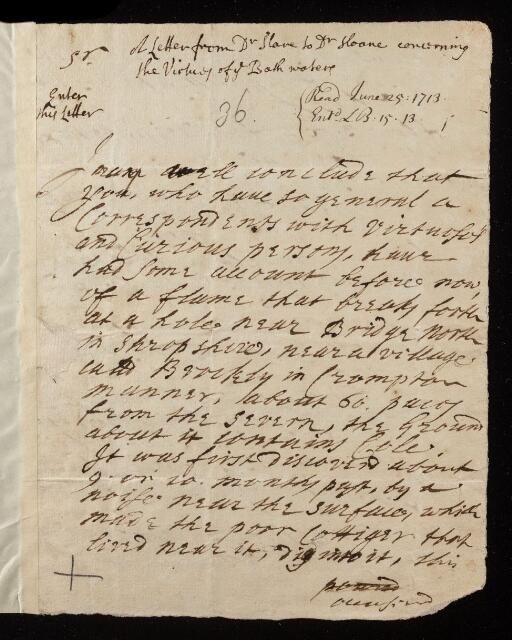 Sr.
A Letter from Dr Slare to Dr Sloane concerning
the Virtues of ye Bath waters
Enter
this Letter
36.
Read June 25. 1713.
Entd. L.B. 15. 13.
I may well conclude that
you, who have so general a
Correspondents with Virtuosos
and Curious persons, have
had some account before now,
of a flame that breaks forth
at a hole near Bridge North
in Shropshire, near a village
calld Brockly in Crompton
manner, about 60. paces
from the Severn, the Ground
about it contains Cole.
It was first discoverd about
9. or 10. months past, by a
noise near the surface, which
made the poor Cottiger that
lived near it, dig into it, this
occasiond